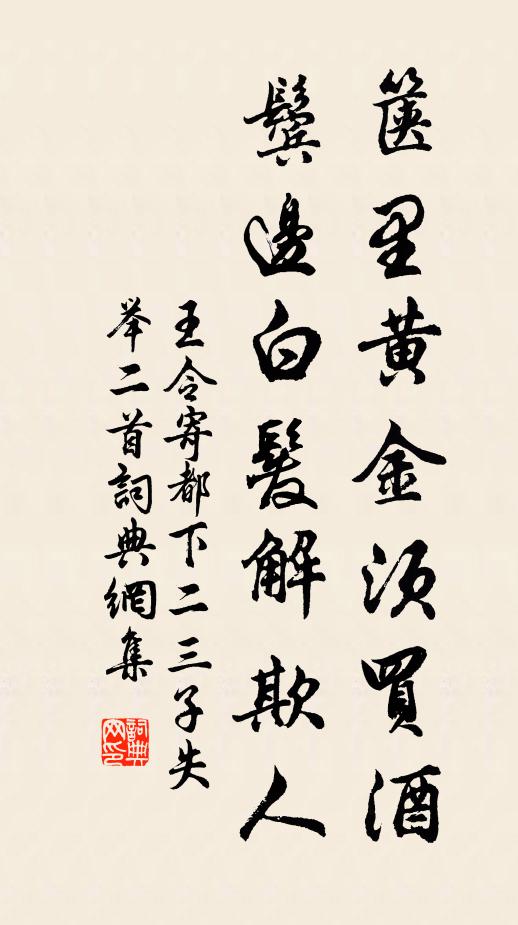 篋里黄金須買酒
鬢邊白髮解欺人
王令寄都下二三子失
举二首詞典網集
詞典網印